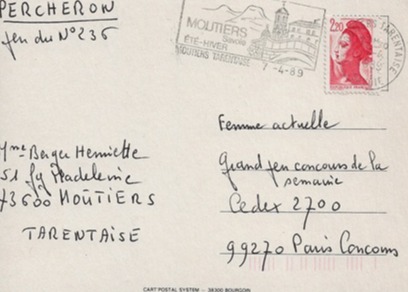 PERCHERON
Jeu du N° 236
MOUTIERS
Savoie
ÉTÉ-HIVER
MOUTIERS TARENTAISE
7-4-89
2,20
TARENTAISE
Femme actuelle
Grand jeu concours de la
semaine
Cedex 2700
99270 Paris Concours
Mme Berger Henriette
51 Fg Madeleine
73600 MOÛTIERS
TARENTAISE
CART POSTAL SYSTEM - 38300 BOURGOIN